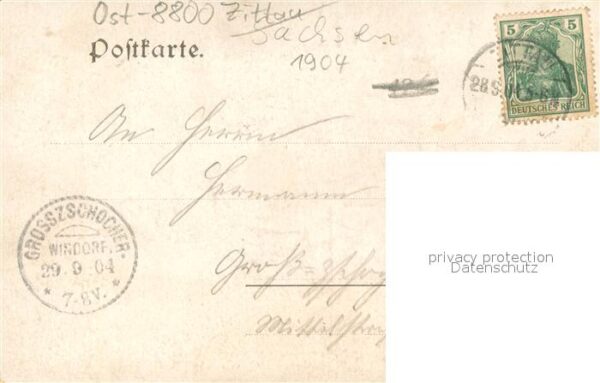 Ost-8800 Zittau
Sachsen
1904
Postkarte.
5
5
DEUTSCHES REICH
An Herrn
Hermann
Groß-Zschoch
Mittelstraß
GROSSZSCHOCHER-
WINDORF.
29.9.04
* 7-8V. *
privacy protection
Datenschutz